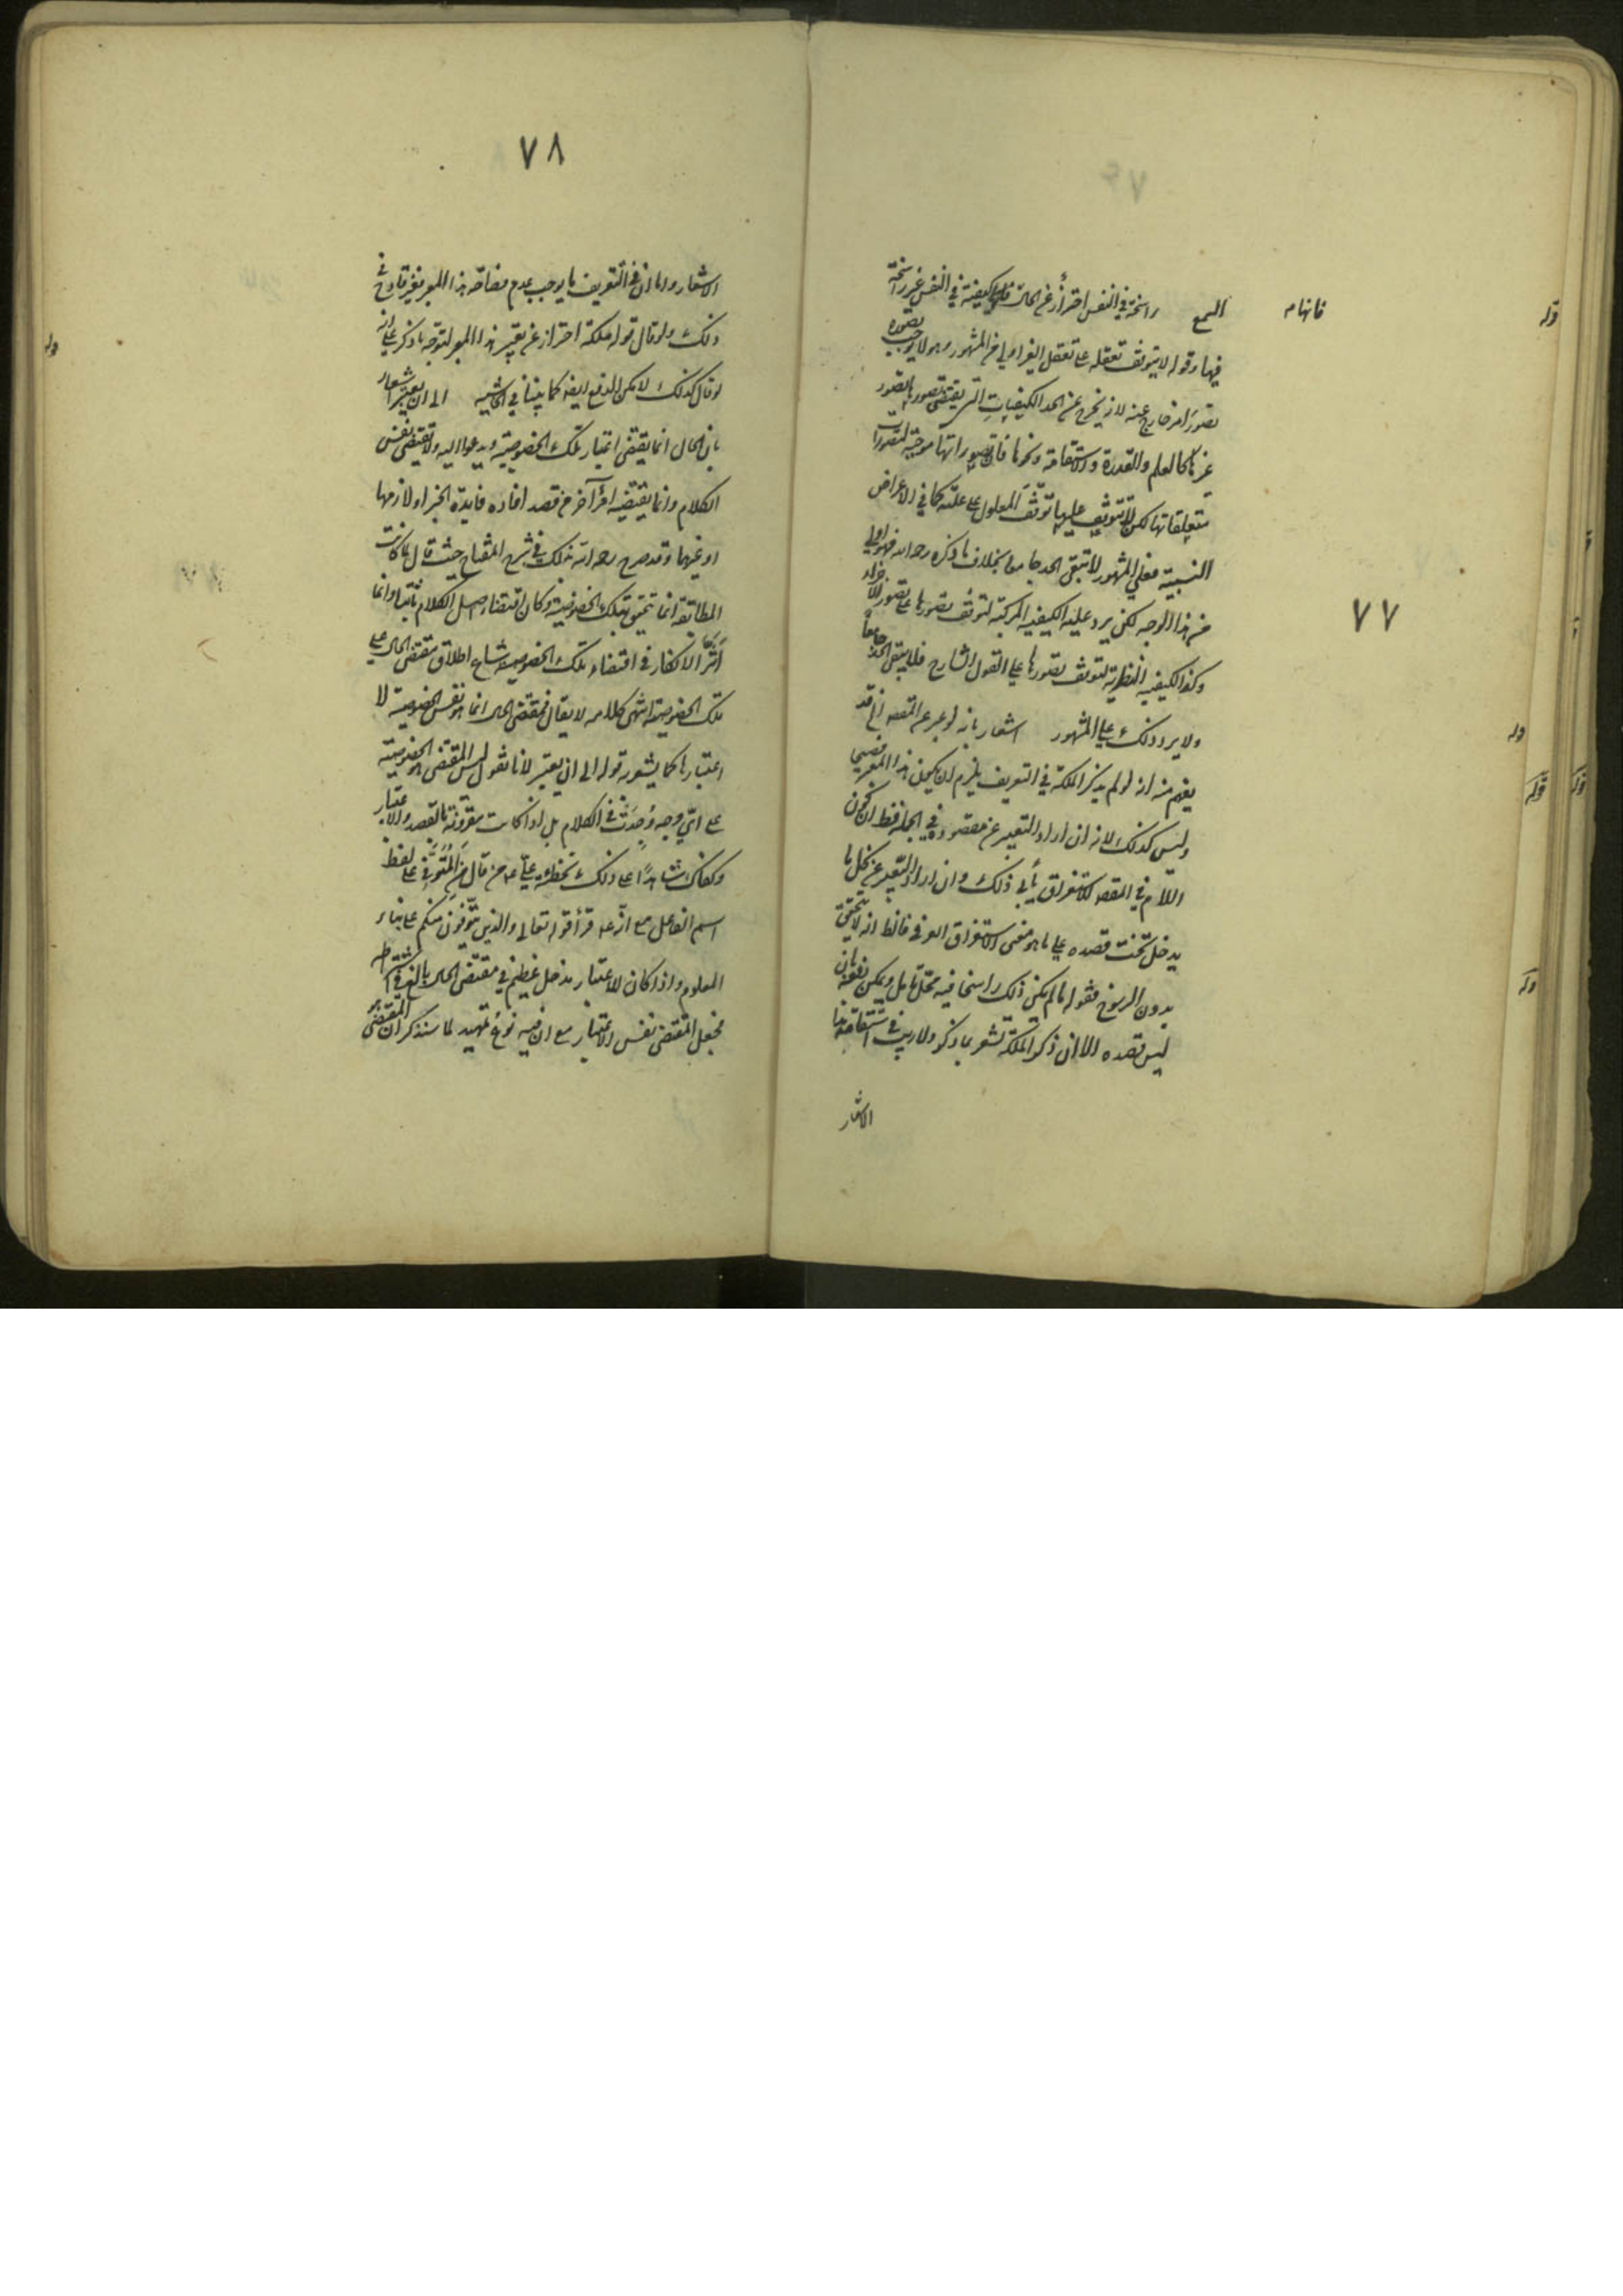 ٧٧
راسخة في النفس احترازا عن الحال فانها كيفية في النفس غير راسخة
فيها وقوله لا يتوقف تعقله على تعقل الغير اولى من المشهور وهو لا يوجب تصوره
تصور امر خارج عنه لانه يخرج عن الحد الكيفيات التي يقتضي تصورها تصور
غيرها كالعلم والقدرة والاستقامة ونحوها فان تصوراتها موجبة لتصورات
متعلقاتها لكن لا تتوقف عليها توقف المعلول على علته كما في الاعراض
النسبية فعلى المشهور لا يبقى الحد جامعا بخلاف ما ذكره رحمه الله فهو اولى
من هذا الوجه لكن يرد عليه الكيفية المركبة لتوقف تصورها على تصور الاجزاء
وكذا الكيفية النظرية لتوقف تصورها على القول الشارح فلا يبقى الحد جامعا
ولا يرد ذلك على المشهور اشعار بانه لو عبر عن المقصود الخ قد
يفهم منه انه لو لم يذكر الملكة في التعريف يلزم ان يكون هذا المعبر فصيحا
وليس كذلك لانه ان اراد التعبير عن مقصوده في الجملة فقط ان كون
اللام في المقصود للاستغراق يأبى ذلك وان اراد التعبير عن كل ما
يدخل تحت قصده على ما هو معنى الاستغراق العرفي فالظ انه لا يتحقق
بدون الرسوخ فقوله ما لم يكن ذلك راسخا فيه محل تأمل ويمكن دفعه بان
ليس قصده الا ان ذكر الملكة تشعر بما ذكر ولا ريب في استقامة هذا
الاشعار
٧٨
الاشعار واما ان في التعريف ما يوجب عدم فصاحة هذا المعبر فغير قادح في
ذلك ولو قال قوله ملكة احتراز عن تعبير هذا المعبر لتوجه ما ذكر على انه
لو قال كذلك لامكن الدفع ايضا كما بينا في الحاشية الى ان يعتبر اشعار
بان الحال انما يقتضي اعتبار تلك الخصوصية ويدعو اليه ولا يقتضي نفس
الكلام وانما يقتضيه امر آخر من قصد افادة فايدة الخبر او لازمها
او غيرهما وقد صرح رحمه الله بذلك في شرح المفتاح حيث قال لما كانت
المطابقة انما تتحقق بتلك الخصوصية وكان اقتضاء اصل الكلام ثابتا وانما
اثر الانكار في اقتضاء تلك الخصوصية شاع اطلاق مقتضى الحال على
تلك الخصوصية انتهى كلامه لا يقال فمقتضى الحال انما هو نفس الخصوصية لا
اعتبارها كما يشعر به قوله الى ان يعتبر لانا نقول ليس المقتضى الخصوصية
على اي وجه وجدت في الكلام بل اذا كانت مقرونة بالقصد والاعتبار
وكفاك شاهدا على ذلك تخطئة علي عم من قال من المتوفي على لفظ
اسم الفاعل مع انه عم قرأ قوله تعالى والذين يتوفون منكم على بناء
المعلوم واذا كان للاعتبار مدخل عظيم في مقتضى الحال بالغ في اشتراطه
فجعل المقتضى نفس الاعتبار مع ان فيه نوع تمهيد لما سنذكر ان المقتضى هو